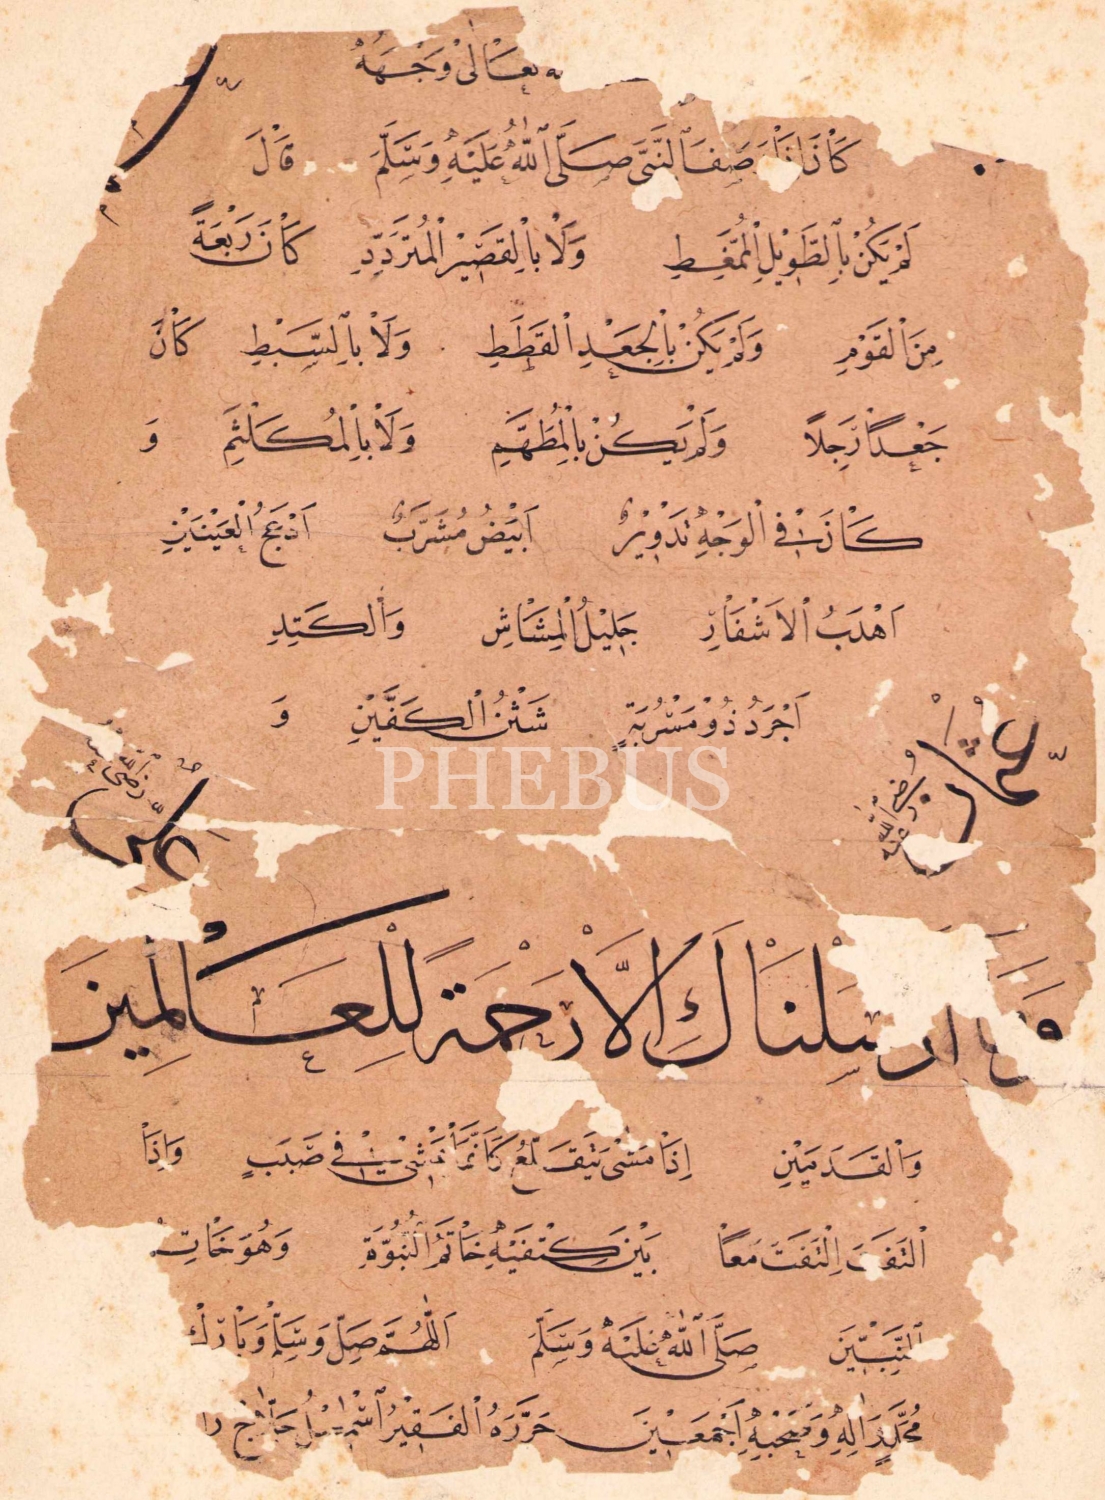 تعالى وجهه
كان اذا وصف النبى صلى الله عليه وسلم قال
لم يكن بالطويل الممغط ولا بالقصير المتردد كان ربعة
من القوم ولم يكن بالجعد القطط ولا بالسبط كان
جعدا رجلا ولم يكن بالمطهم ولا بالمكلثم و
كان فى الوجه تدوير ابيض مشرب ادعج العينين
اهدب الاشفار جليل المشاش والكتد
اجرد ذو مسربة شثن الكفين و
PHEBUS
على رضى الله
رضى الله عنه
ارسلناك الا رحمة للعالمين
والقدمين اذا مشى يتقلع كانما يمشى فى صبب واذا
التفت التفت معا بين كتفيه خاتم النبوة وهو خاتم
النبيين صلى الله عليه وسلم اللهم صل وسلم وبارك
محمد واله وصحبه اجمعين حرره الفقير